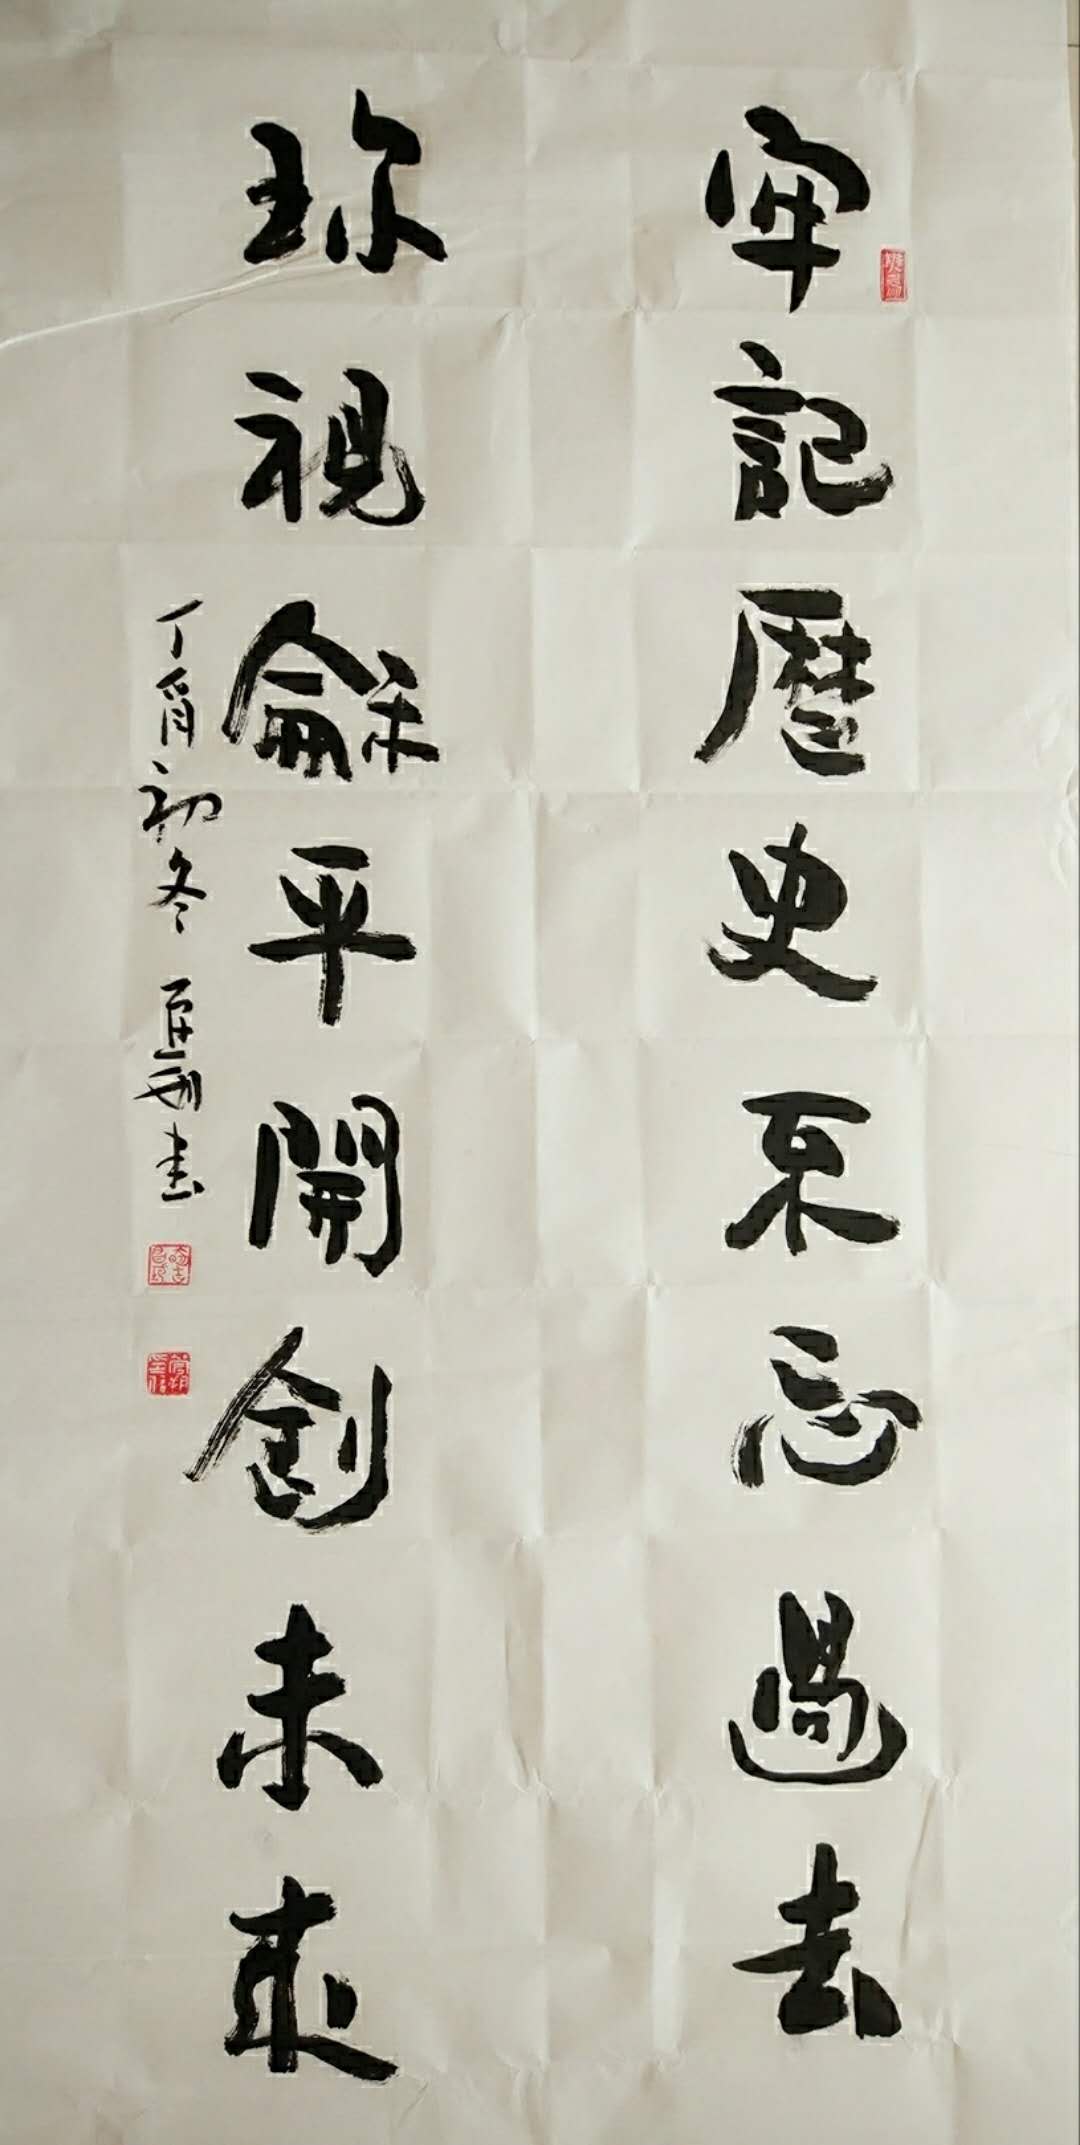 牢記歷史不忘過去
珎視龢平開創未來
丁酉初冬 書